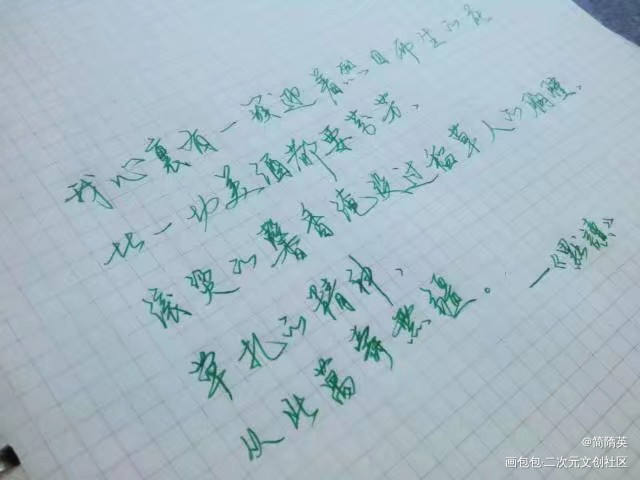 我心裏有一簇迎着烈日而生的花
比一切美酒都要芬芳、
滚烫的馨香淹没过稻草人的胸膛,
草扎的精神、
从此萬壽無疆。 —《默讀》
@简隋英
画包包·二次元文创社区